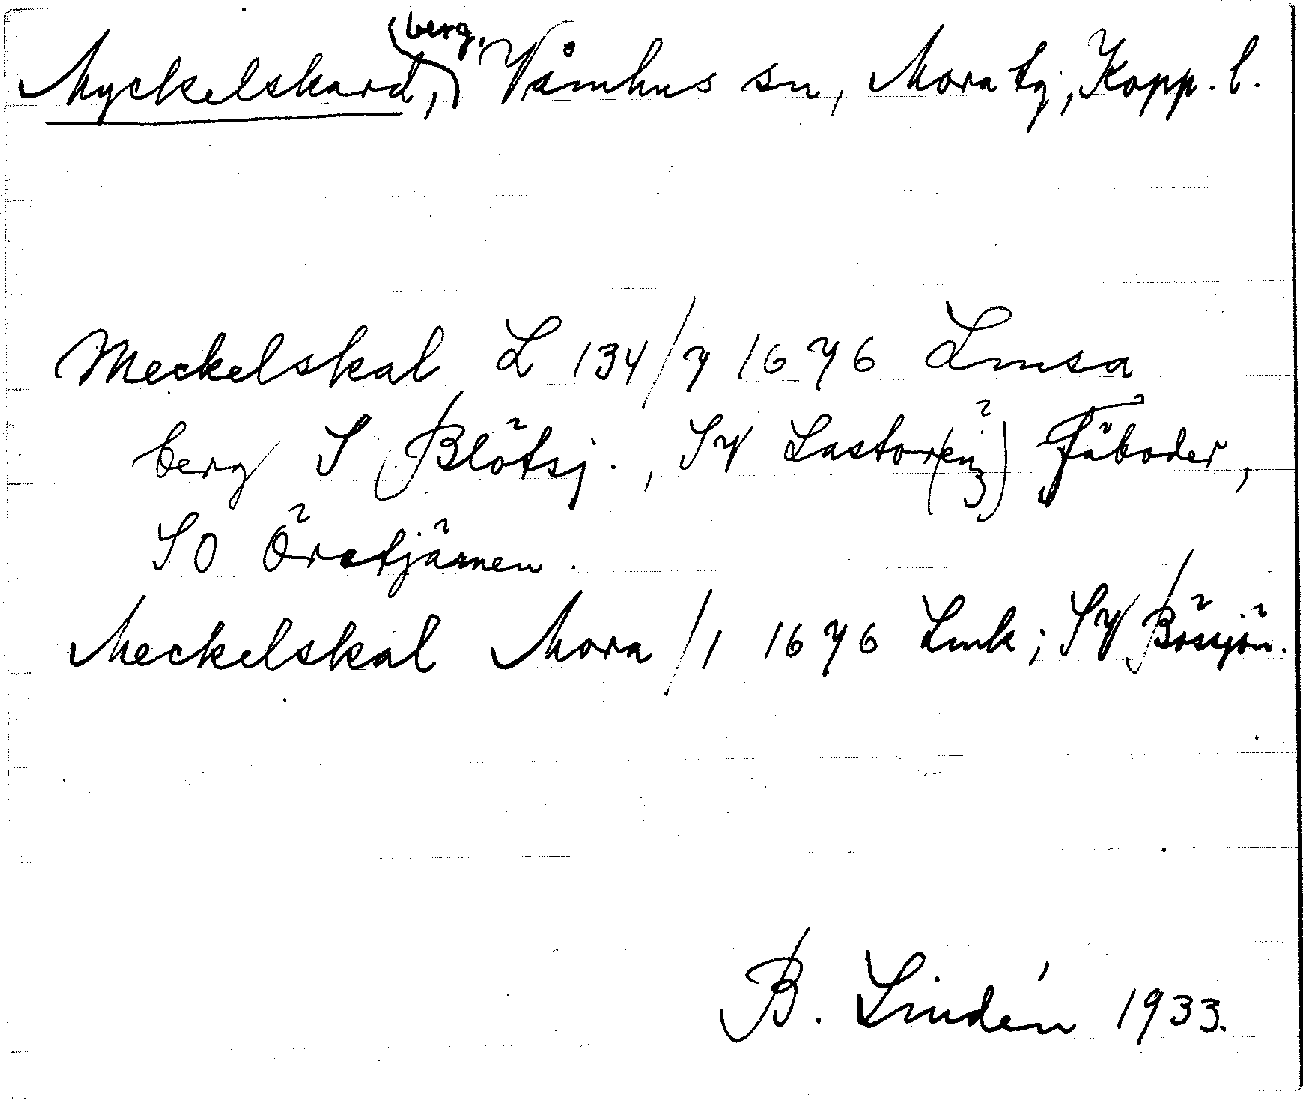 Myckelskard, berg, Våmhus sn, Mora tg, Kopp. l.
Meckelskal L 134/7 1676 Lmsa
berg S Blötsj., SV Lastor(en?) Fäboder,
SO Örstjärnen.
Meckelskal Mora /1 1676 Lmk; SV Bösjön.
B. Lindén 1933.